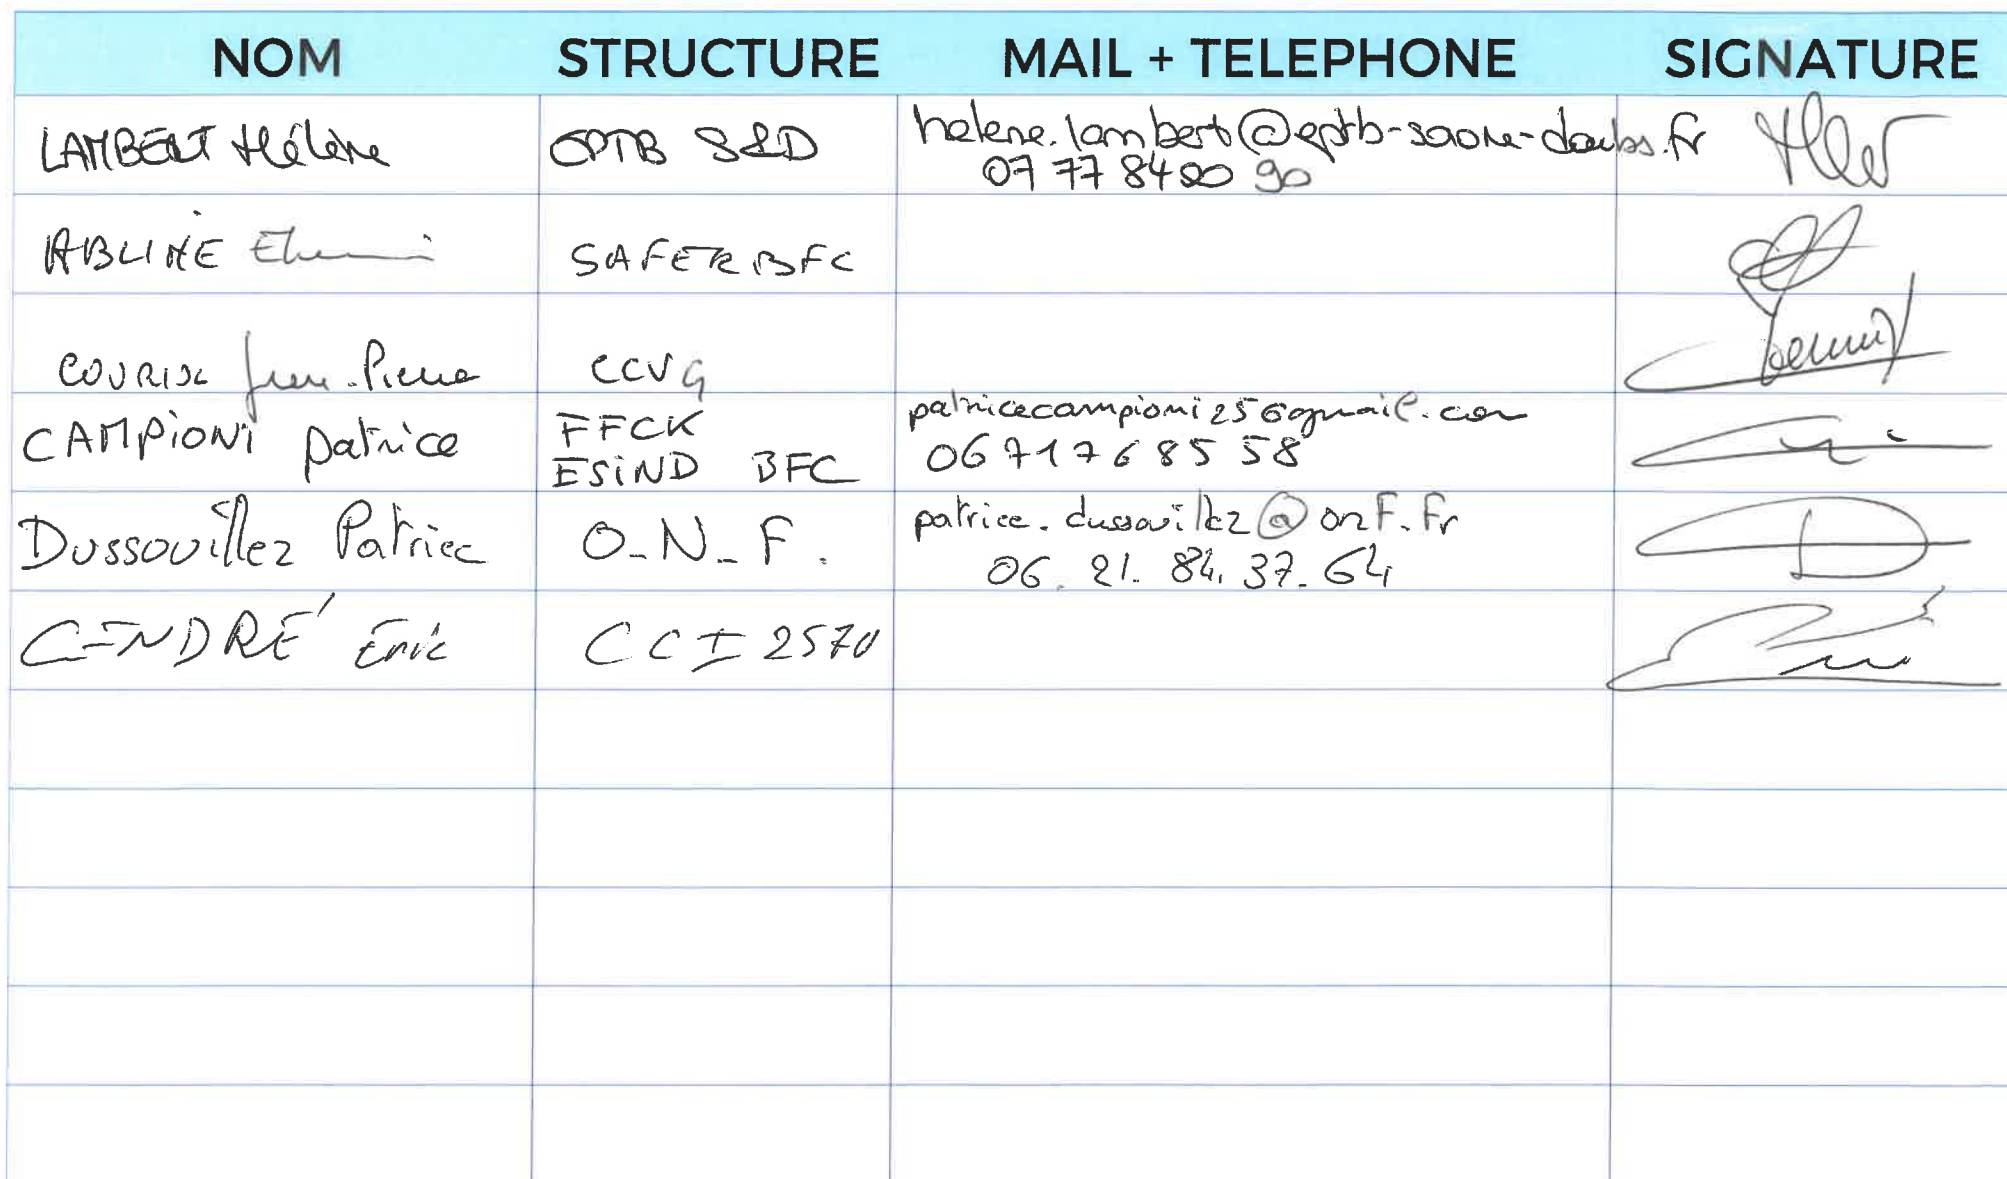 NOM STRUCTURE MAIL + TELEPHONE SIGNATURE
LAMBERT Hélène EPTB S&D helene.lambert@eptb-saone-doubs.fr
07 77 84 00 90
ABLINE SAFER BFC
Jean-Pierre CCVG
CAMPIONI patrice FFCK patricecampioni25@gmail.com
ESIND BFC 06 71 76 85 58
Dussouillez Patrice O.N.F. patrice.dussouillez@onf.fr
06.21.84.37.64
CENDRÉ Eric CCI 2570